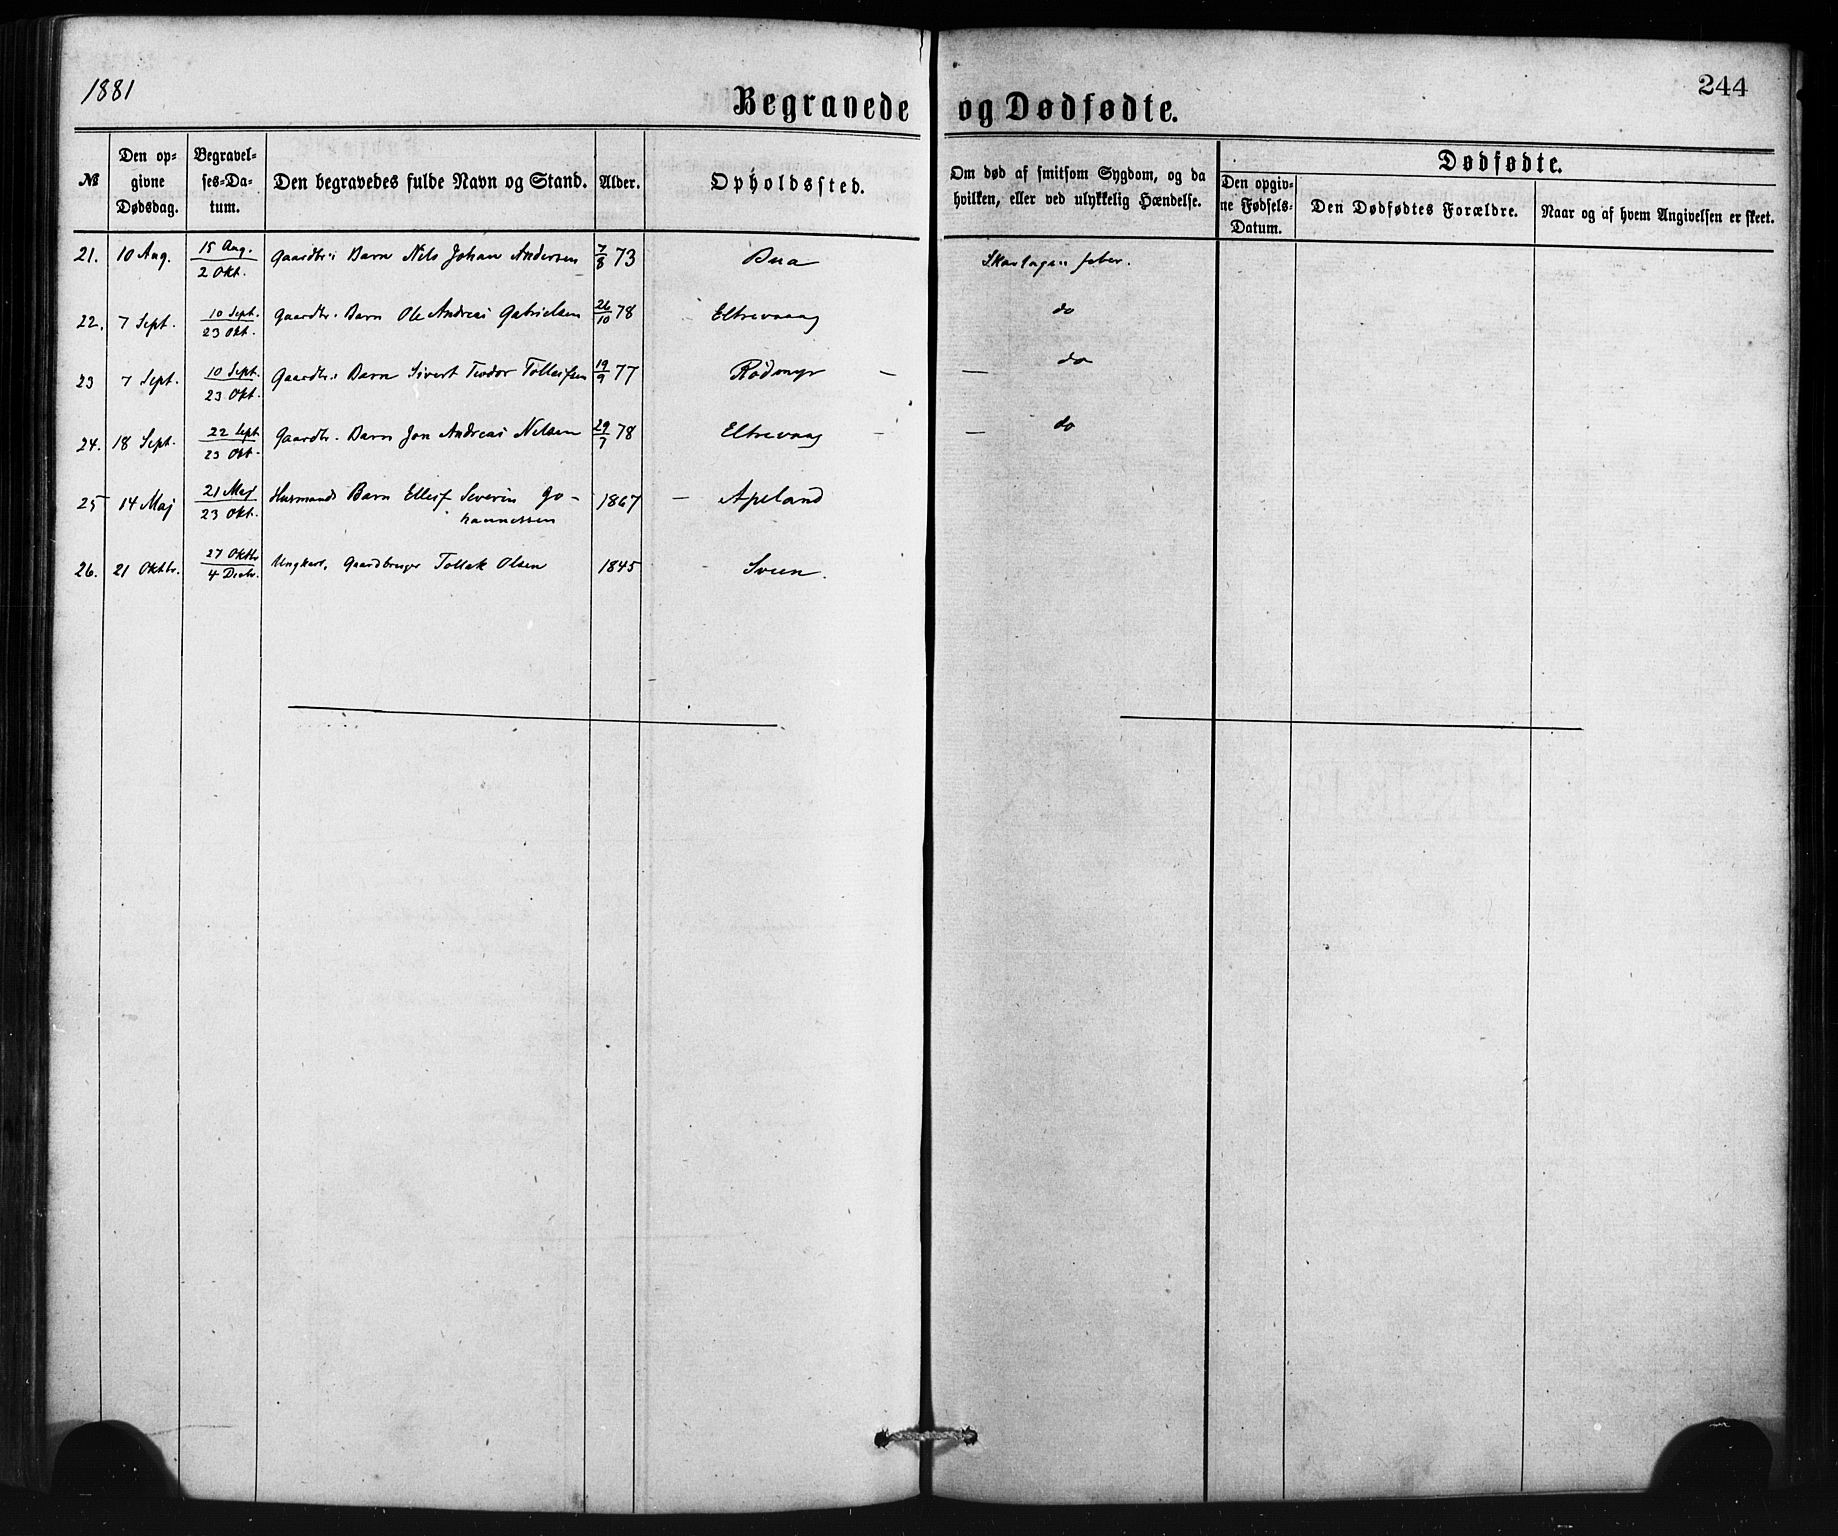 1881
244
Begravede og Dødfødte.
№
Den op-
givne
Dødsdag.
Begravel-
ses-Da-
tum.
Den begravedes fulde Navn og Stand.
Alder.
Opholdssted.
Om død af smitsom Sygdom, og da
hvilken, eller ved ulykkelig Hændelse.
Dødfødte.
Den opgiv-
ne Fødsels-
Datum.
Den Dødfødtes Forældre.
Naar og af hvem Angivelsen er skeet.
21. 10 Aug. 15 Aug. / 2 Okt. Gaardbr: Barn Nels Johan Andersen 7/8 73 Bua Skarlagens feber.
22. 7 Sept. 10 Sept. / 23 Okt. Gaardbr. Barn Ole Andreas Gabrielsen 26/10 78 Eltrevaag do
23 7 Sept. 10 Sept. / 23 Okt. Gaardbr: Barn Sivert Teodor Tolleifsen 19/9 77 Rødmyr — — do
24. 18 Sept. 22 Sept / 23 Okt. Gaardbr. Barn Jon Andreas Nelsen 29/7 78 Eltrevaag — — do
25 14 Maj 21 Maj / 23 Okt. Husmands Barn Elleif Severin Jo-
hannessen 1867 — Apeland
26. 21 Oktbr. 27 Oktbr / 4 Decbr. Ungkarl, Gaardbruger Tollak Olsen 1845 Sveen.